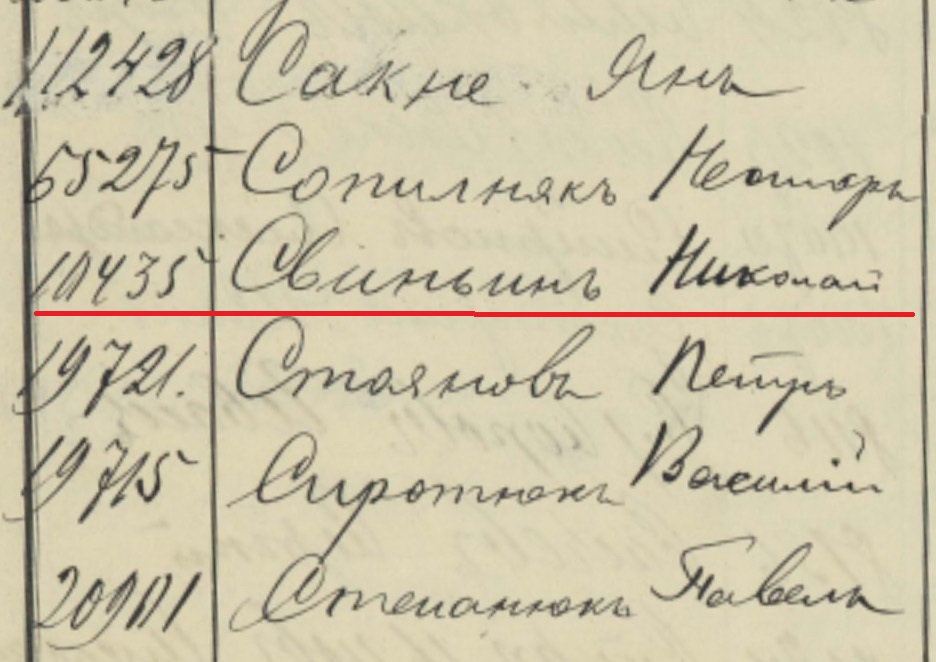 112428 Сакне Янъ
65275 Сопилнякъ Несторъ
10435 Свиньинъ Николай
19721. Стояновъ Петръ
19715 Сиротюкъ Василій
20901 Степанюкъ Павелъ